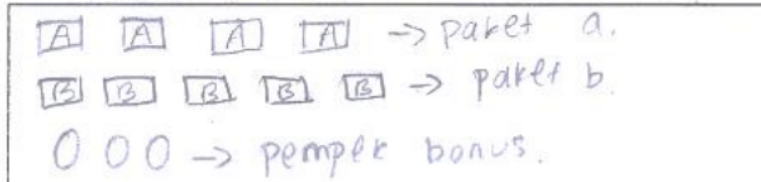 A A A A → paket a.
B B B B B → paket b.
0 0 0 → pempek bonus.